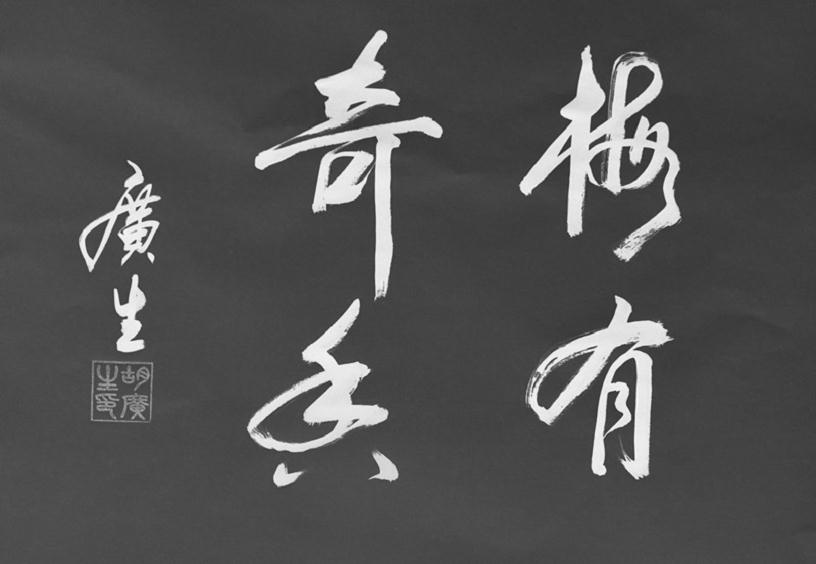 梅有
奇兵
廣生
胡廣生印